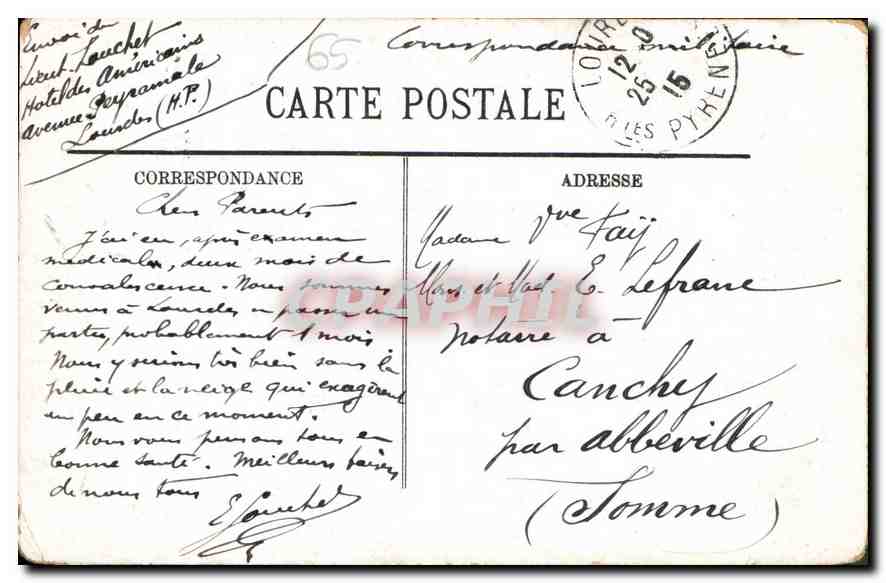 Envoi du
Lieut. Louchet
Hotel des Américains
avenue Peyramale
Lourdes (H.P.)
65
Correspondance militaire
12-0
25
15
HTES PYRENEE
CARTE POSTALE
CORRESPONDANCE
ADRESSE
Chers Parents
J'ai eu, après examen
medical, deux mois de
convalescence. Nous sommes
venus à Lourdes en passer une
partie, probablement 1 mois
Nous y serions très bien sans la
pluie et la neige qui exagèrent
un peu en ce moment.
Nous vous pensons tous en
bonne santé. Meilleurs baisers
de nous tous
E Louchet
Madame Vve
Mons et Mad. E. Lefranc
notaire à
Canchy
par abbeville
(Somme)
CPAPHIL